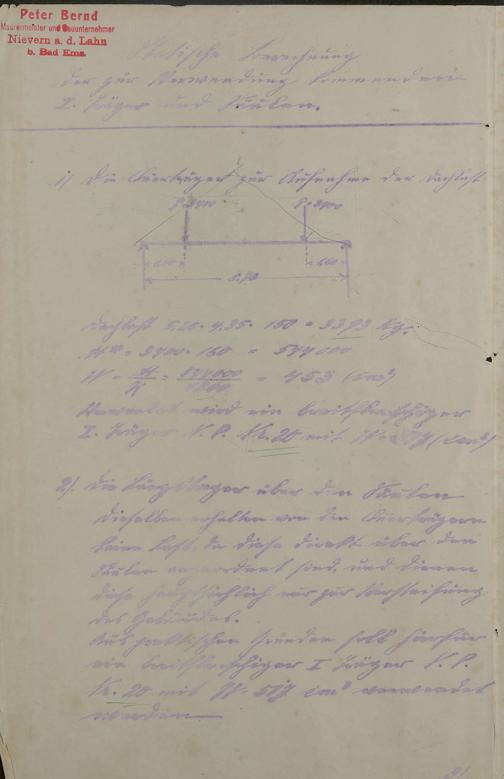 Peter Bernd
Maurermeister und Bauunternehmer
Nievern a. d. Lahn
b. Bad Ems.
Statische Berechnung
der zur Verwendung kommenden
I. Träger und Säulen.
1) Die Querträger zur Aufnahme der Dachlast
P. 3400 P. 3400
160 160
5.70
Dachlast 5,25 · 4,35 · 150 = 3393 Kg.
= 3400 · 160 = 544000
W = M/K = 544000/1200 = 453 (cm³)
Verwendet wird ein breitflanschiger
I. Träger N. P. Nr. 20 mit W = 517 (cm³)
2). Die Längsträger über den Säulen
dieselben erhalten von den Querträgern
keine Last, da diese direkt über den
Säulen angeordnet sind, und dienen
diese hauptsächlich nur zur Versteifung
des Gebäudes.
Aus praktischen Gründen soll hierfür
ein breitflanschiger I Träger N. P.
Nr. 20 mit W = 517 cm³ verwendet
werden